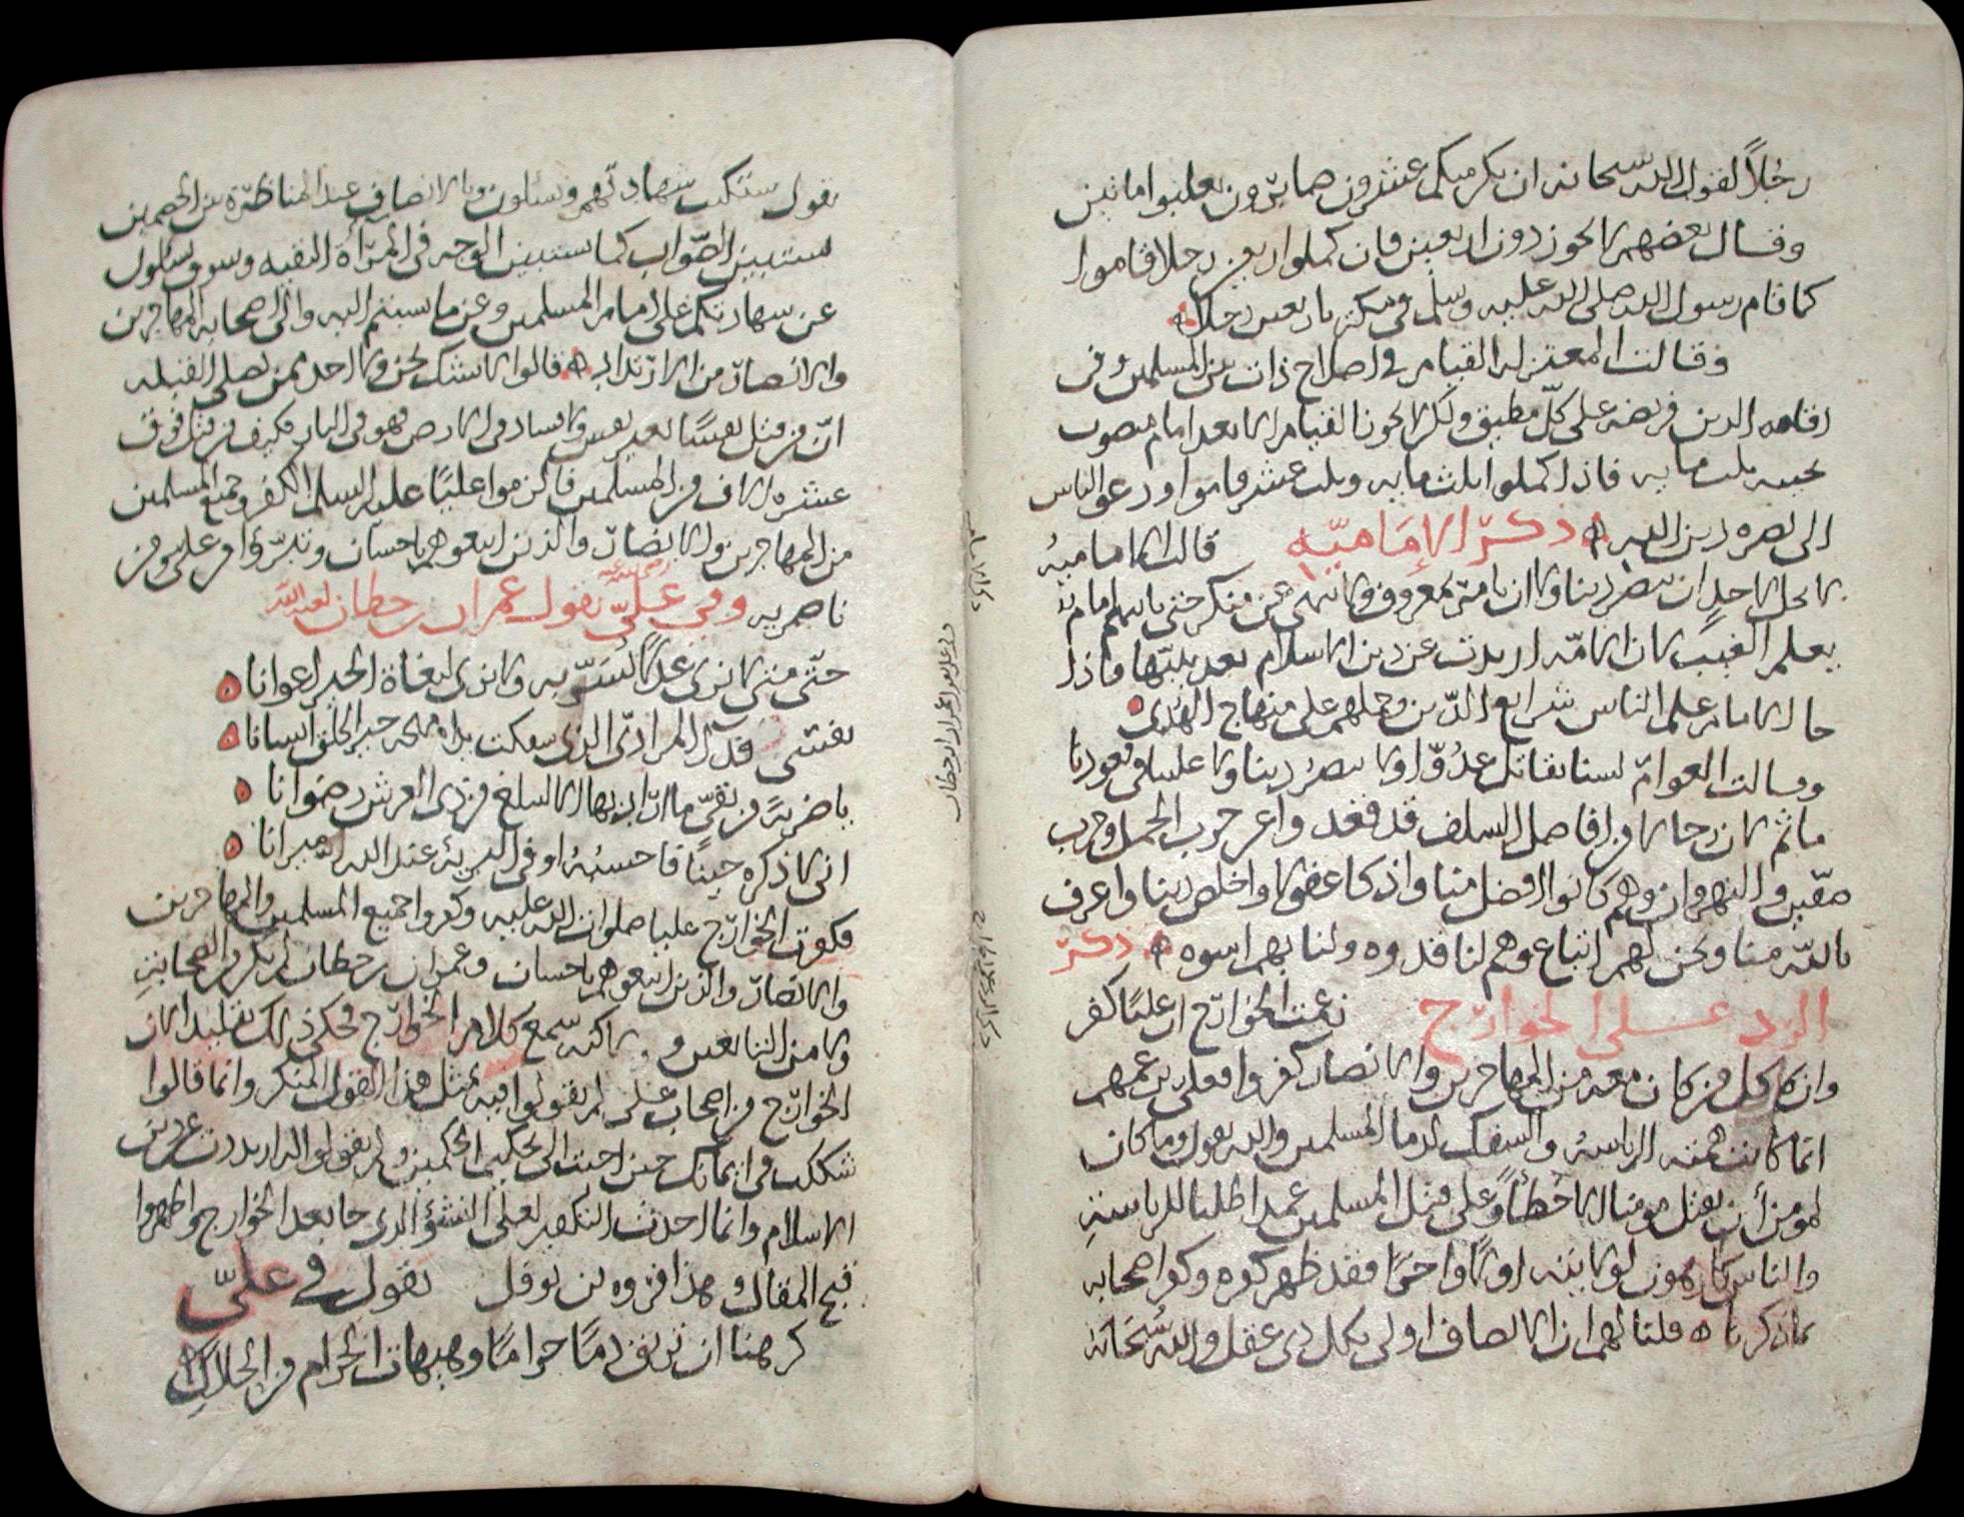 رجُلاً لقول الله سبحانه ان يكن منكم عشرون صابرون يغلبوا مائتين
وقال بعضهم لا يجوز دون اربعين فان كملوا اربعين رجلا قاموا
كما قام رسول الله صلى الله عليه وسلم في مكة باربعين رجلا
وقالت المعتزله القيام في اصلاح ذات بين المسلمين وفي
اقامة الدين فريضه على كل مطيق ولكن لا يجوز القيام الا بعد امام منصوب
فاذا كملوا ثلث مايه وثلث عشر قاموا ودعوا الناس
الى نصره دين الله ذكر الإماميّه قالت الاماميه
لا يحل لاحدٍ ان ينصر دينا ولا ان يامر بمعروف ولا ينهى عن منكر حتى ياتيهم امام
يعلم الغيب لان الامّه ارتدت عن دين الاسلام بعد نبيّها فاذا
جا الامام علم الناس شرايع الدّين وحملهم على منهاج الهُدى
وقالت العوامّ لسنا نقاتل عدُوّا ولا ننصُر دينا ولا علينا قعودنا
ماثم لان رجالا من افاضل السلف قد قعد واعن حرب الجمل وحرب
صفّين والنهروان وهم كانوا افضل منا واذكا عقولا واخلص دينا واعرف
بالله منا ونحن لهم اتباع وهم لنا قدوه ولنا بهم اسوه ذكر
الرد على الخوارج زعمت الخوارج ان عليّا كفر
وان كل من كان معه من المهاجرين والانصار كفروا فعلى بزعمهم
انما كانت همته الرياسهُ والسفك لدما المسلمين والله يقول وما كان
لمومن أن يقتل مومنا الا خطأً وعلى قتل المسلمين عمدا طلبا للرياسةِ
والناس كارهون لولايته اولا واخرًا فقد ظهر كفره وكفر اصحابه
بما ذكرنا قلنا لهم ان الانصاف اولى بكل ذى عقل والله سُبحَانه
يقول ستكتب شهادتهم ويسئلون وبالانصاف عند المناظرة بين الخصمين
يستبين الصّواب كما يستبين الوجه في المرأة النقيه وسوف تسئلون
عن شهادتكم على امام المسلمين وعن ما نسبتم اليه والى اصحابه المهاجرين
والانصار من الارتداد قالوا لا نشك نحن ولا احد ممن يصلى القبله
انّ من قتل نفسًا بغير نفس ولا فساد في الارض فهو في النار فكيف من قتل فوق
عشره الاف من المسلمين فالزموا عليًا عليه السلم الكفر وجميع المسلمين
من المهاجرين والانصار والذين اتبعوهم باحسان وتبرّوا من على ومن
ناصريه وفي عليّ رضى الله عنه يقول عمران بن حطان لعنه الله
حتّى متى لا نرى عدلا نُسَرّ به ولا نرى لبغاة الخير اعوانا
نفسى المرادّى الذى سفكت يداه مهجه خير الخلق انسانا
يا ضربةً من تقىّ ما اراد بها الا ليبلغ من ذى العرش رضوانا
انى لاذكره حينًا فاحسبُهُ اوفى البريهُ عند الله ميزانا
فكفرت الخوارج عليا صلوات الله عليه وكفروا جميع المسلمين والمهاجرين
والانصار والذين اتبعوهم باحسان وعمران بن حطان لم يكن من الصحابةِ
ولا من التابعين و لاكنه سمع كلام الخوارج فحكى ذلك تقليدا لان
الخوارج من اصحاب على لم يقولوا فيه بمثل هذا القول المنكر وانما قالوا
شككت في ايمانك حين اجبت الى تحكيم الحكمين ولم يقولوا انه ارتددت عن دين
الاسلام وانما احدث التكفير لعلى النشؤ الذى جا بعد الخوارج واظهروا
قبح المقال وهذا فروه بن نوفل يقول في عليّ
كرهنا ان نريق دمًا حرامًا وهيهات الحرام من الحلالِ